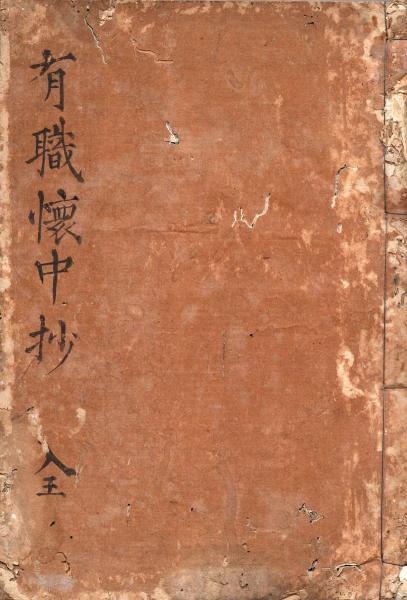 有職懷中抄 全